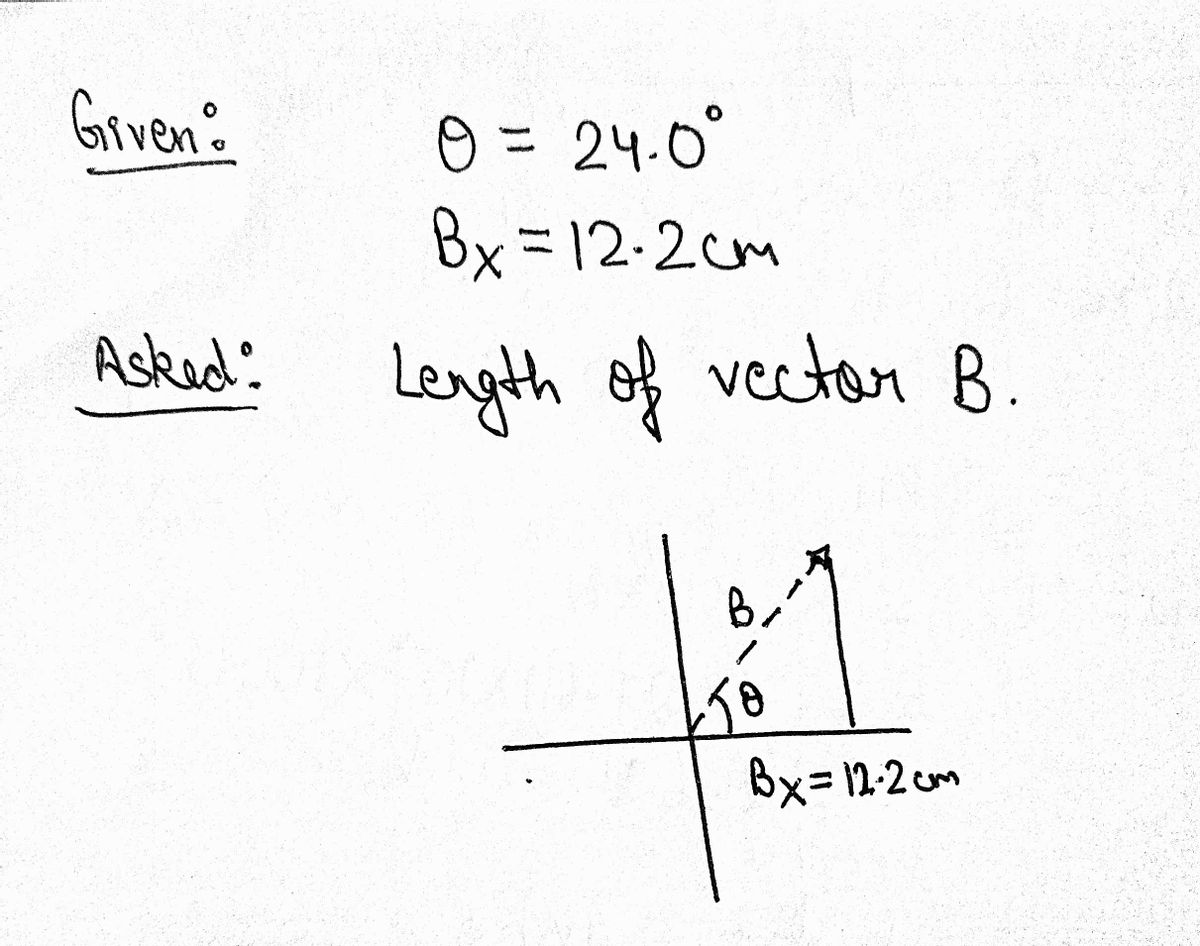 Given:
θ = 24.0°
Bx = 12.2cm
Asked:
Length of vector B.
B
θ
Bx = 12.2 cm